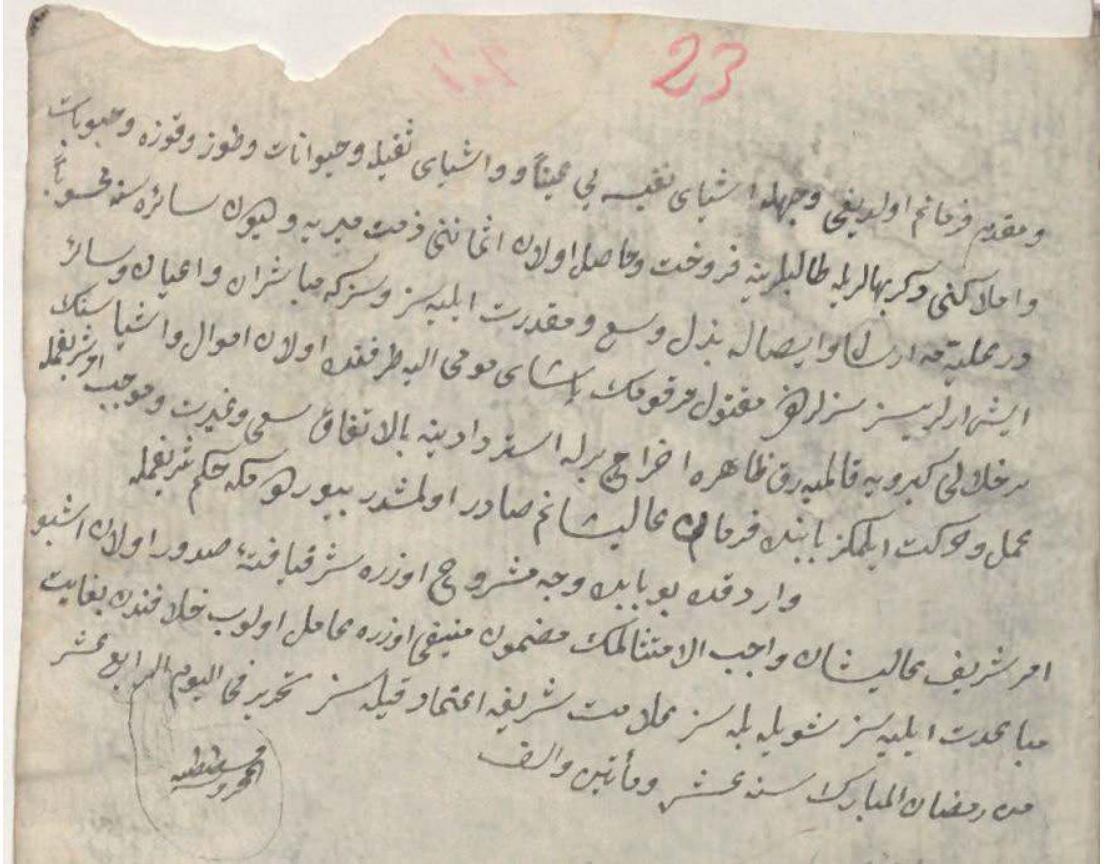 23
ومقدم فرمانم اولدیغی وجهله اشیای نفیسه یی عیناً و واشیای ثقیله وحیوانات وطوز وقوزه وحبوبات
واملاکنی دکر بهالریله طالبلرینه فروخت وحاصل اولان اثماننی ذمت میریه و دیون سائره سنه محسوباً
در علیه مه ارسال وایصاله بذل وسع ومقدرت ایلیه سز وسز که مباشران واعیان وسائر
ایش ارلریسز سزلردخی مقتول مرقومک پاشای مومی الیه طرفندن اولان اموال واشیاسنک
بر خلالی کیرویه قالمیه رق ظاهره اخراج برله استردادینه بالاتفاق سعی وغیرت وموجب امر شریفمله
عمل وحرکت ایلمکز بابنده فرمان عالیشانم صادر اولمشدر بیوردم که حکم شریفمله
واردقده بو بابده وجه مشروح اوزره شرفیافته صدور اولان اشبو
امر شریف عالیشان واجب الامتثالمک مضمون منیفی اوزره عامل اولوب خلافندن بغایت
مباعدت ایلیه سز شویله بله سز علامت شریفه اعتماد قیله سز تحریر فی الیوم الرابع عشر
من رمضان المبارک سنه عشر ومأتین والف
قسطنطنیه
المحروسه